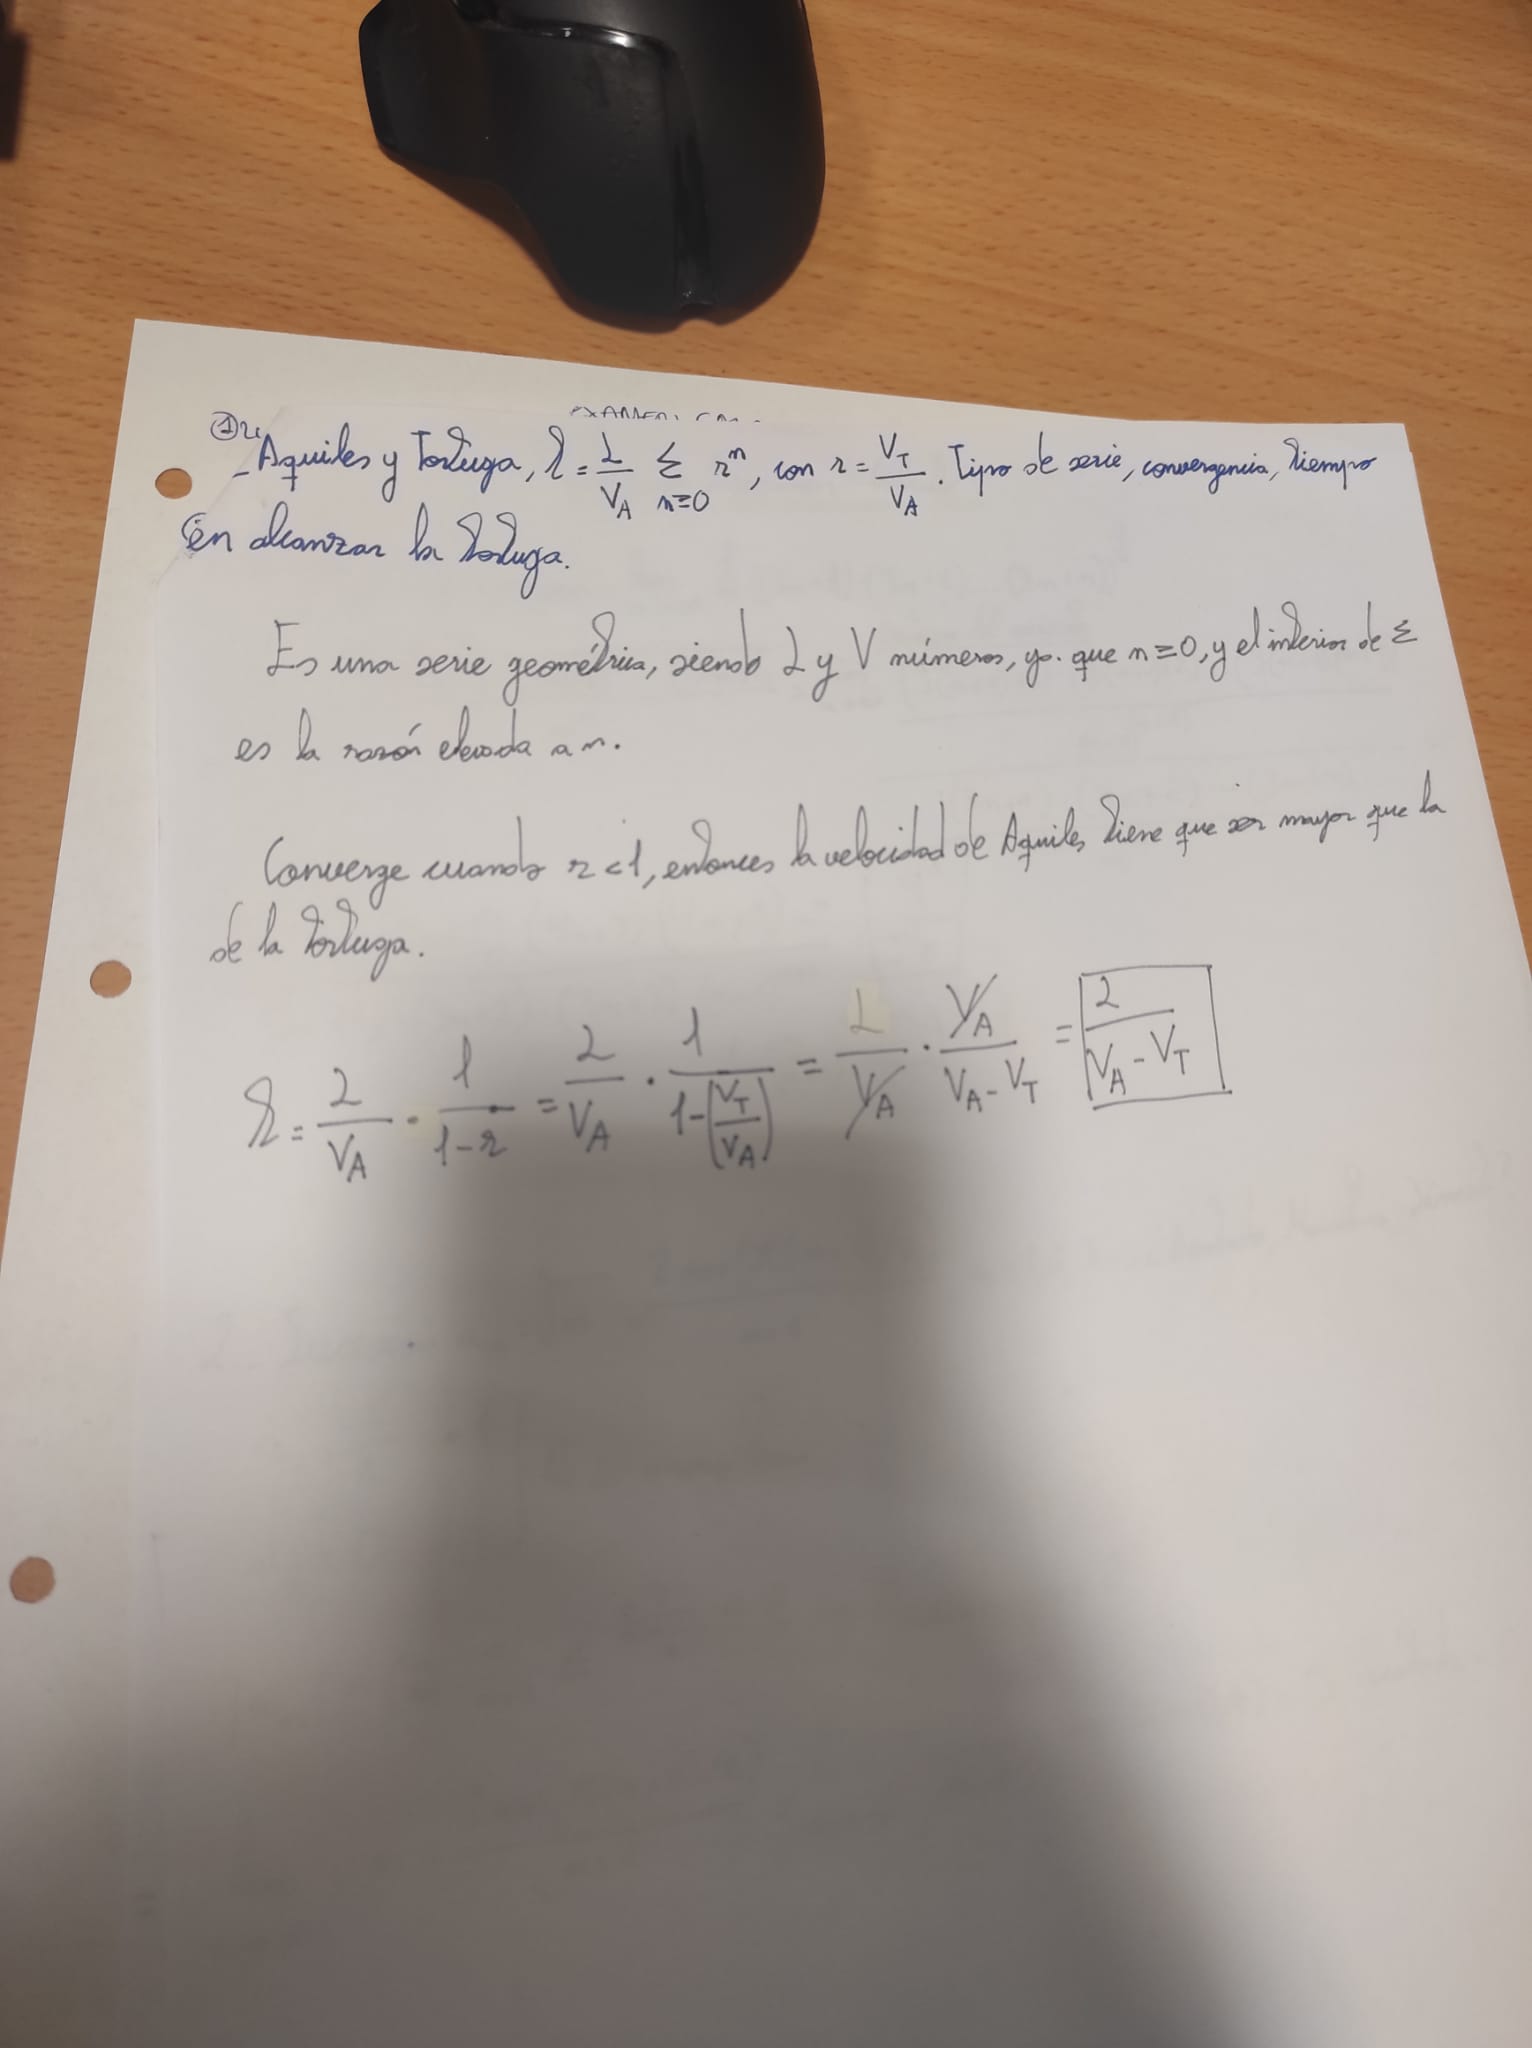 ①
- Aquiles y Tortuga, t = L/V_A Σ_{n=0} r^n, con r = V_T/V_A. Tipo de serie, convergencia, tiempo
en alcanzar la tortuga.
Es una serie geométrica, siendo L y V números, ya que n=0, y el interior de Σ
es la razón elevada a n.
Converge cuando r<1, entonces la velocidad de Aquiles tiene que ser mayor que la
de la tortuga.
t = L/V_A · 1/(1-r) = L/V_A · 1/(1-(V_T/V_A)) = L/V_A · V_A/(V_A-V_T) = L/(V_A-V_T)